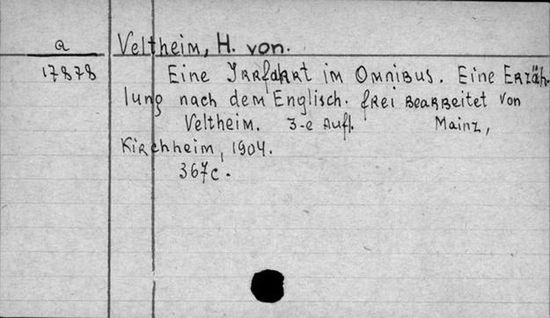 a
Veltheim, H. von.
17878
Eine Irrfahrt im Omnibus. Eine Erzäh-
lung nach dem Englisch. frei bearbeitet von
Veltheim. 3-e Aufl. Mainz,
Kirchheim, 1904.
367c.